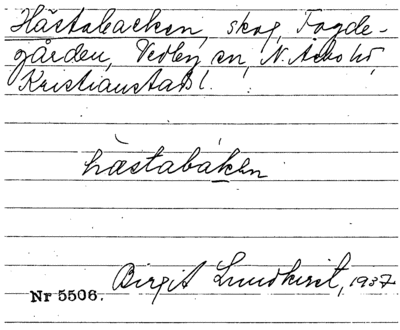 Hästabacken, skog, Fogde-
gården, Vedby sn, N. Åsbo hd,
Kristianstads l.
hästabaken
Birgit Lundkvist, 1937
Nr 5506.